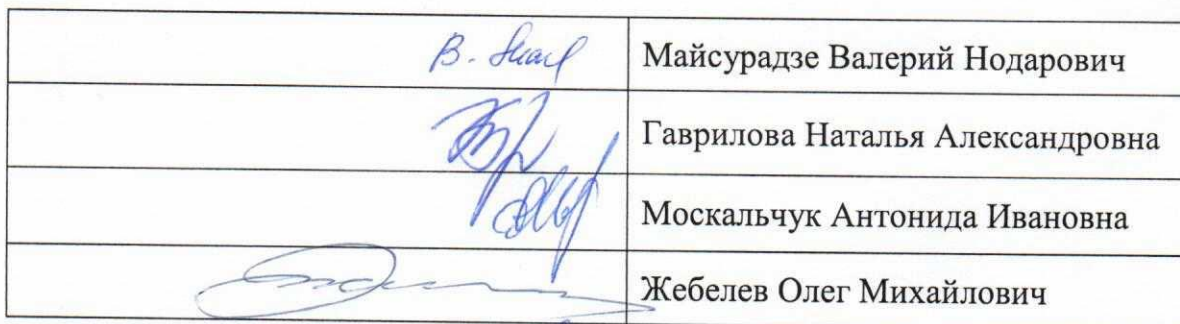 Майсурадзе Валерий Нодарович
Гаврилова Наталья Александровна
Москальчук Антонида Ивановна
Жебелев Олег Михайлович